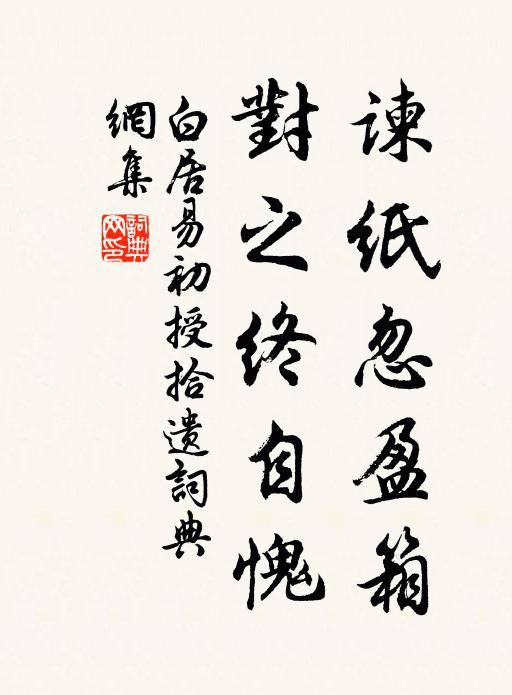 諫紙忽盈箱
對之終自愧
白居易初授拾遺詞典
網集
詞典網印